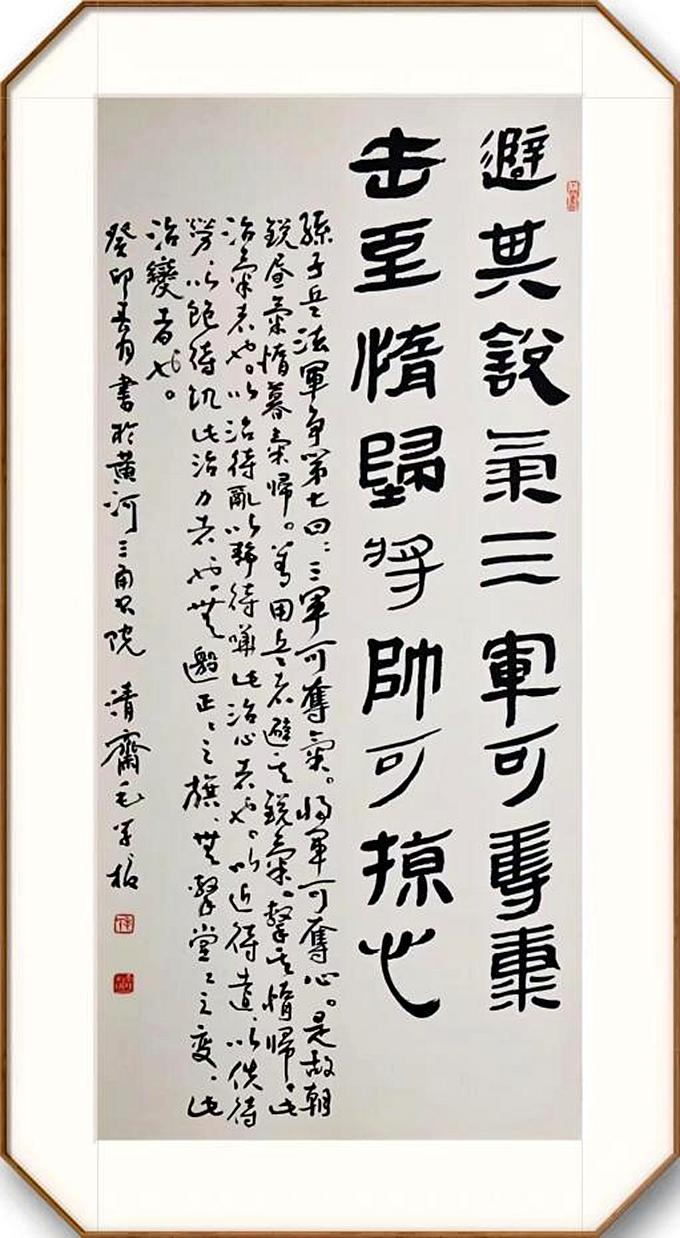 避其說氣三軍可
击至惰歸將帥可掠心
孫子兵法軍争第七曰：三軍可奪氣。將軍可奪心。是故朝
銳昼氣惰暮氣歸。善用兵者避其銳氣，擊其惰歸，此
治氣者也。以治待亂以靜待嘩此治心者也。以近待遠，以佚待
勞以飽待飢此治力者也。無邀正〻之旗，無擊堂〻之变，此
治變者也。
癸卯春月書於黃河三角書院 清齋毛學